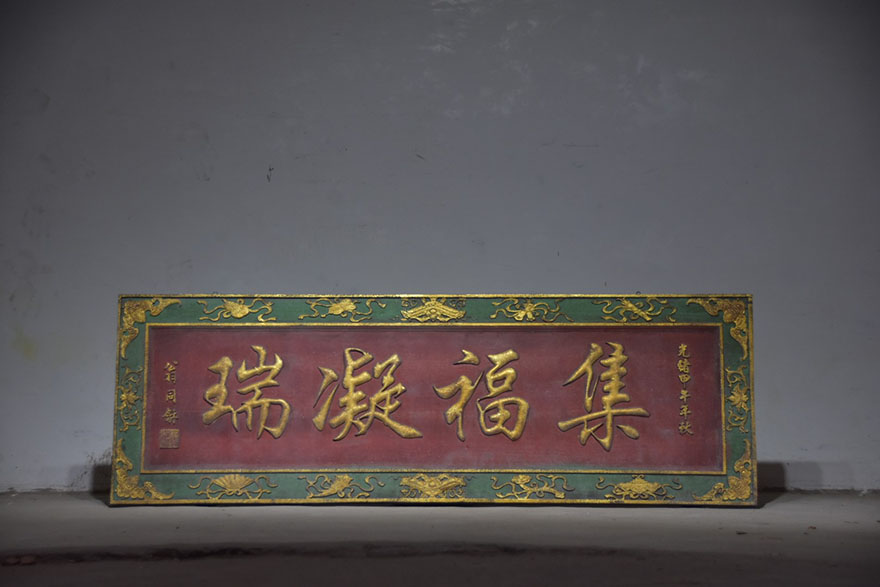 光緒甲午年秋
集福凝瑞
翁同龢